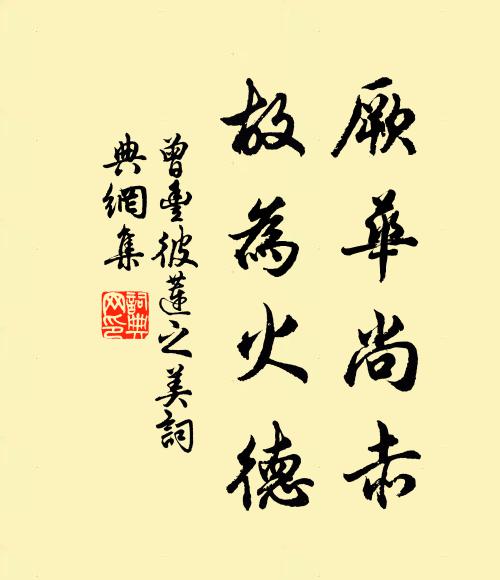 厥華尚赤
故為火德
曾豐彼蓮之美詞
典網集
詞典
网印